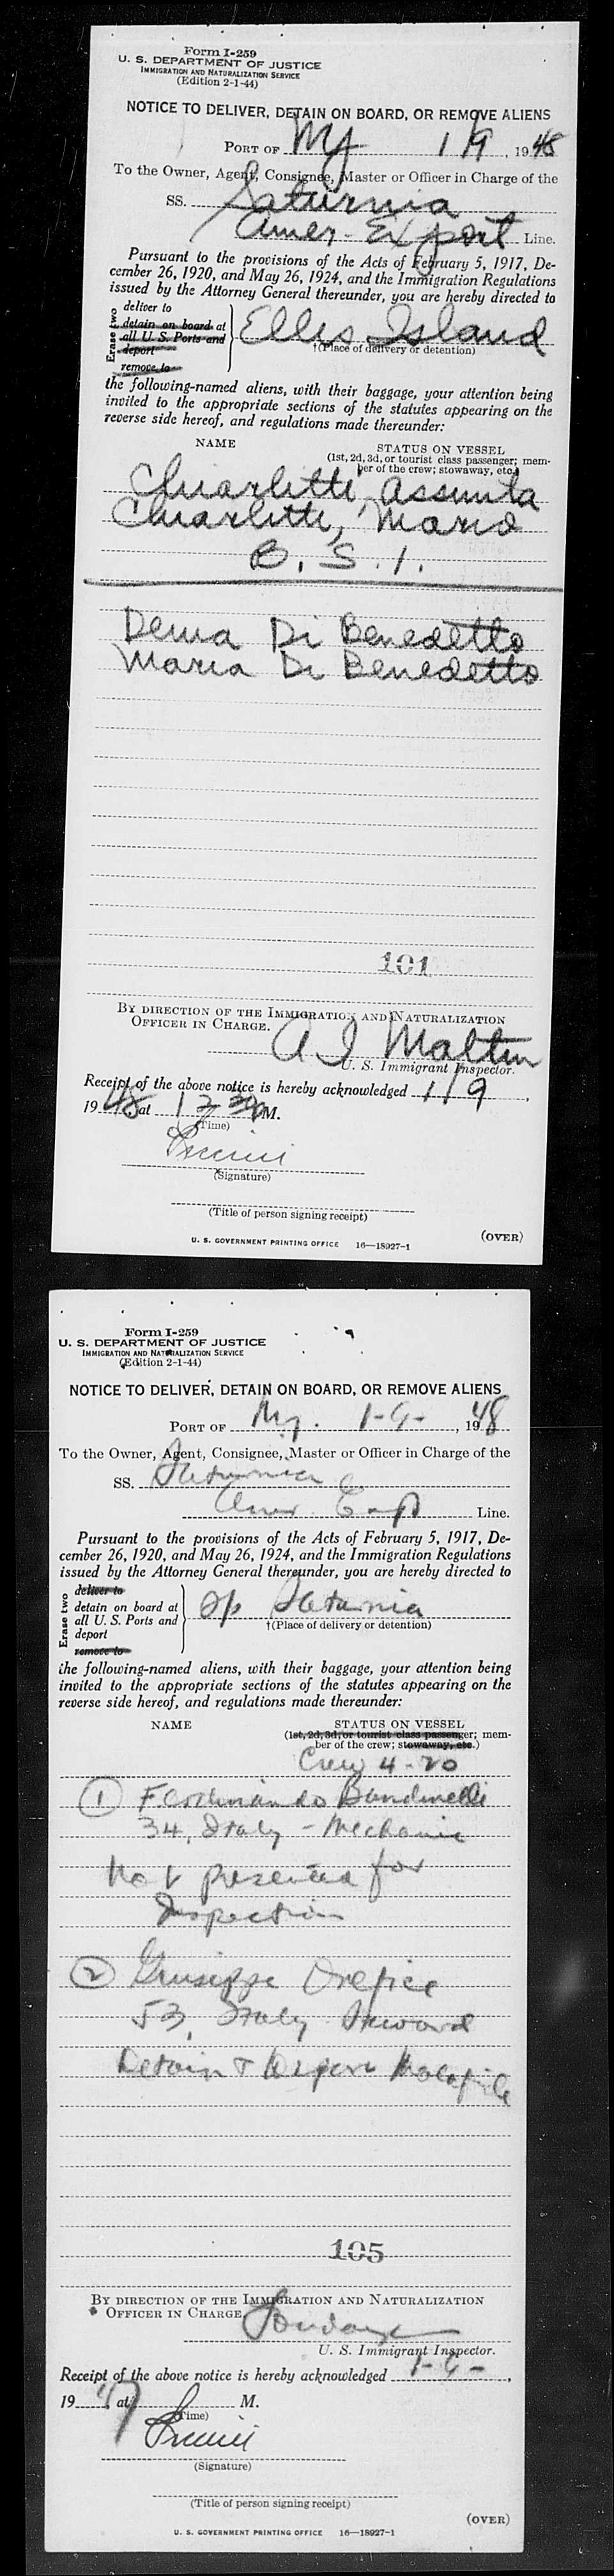 Form I-259
U. S. DEPARTMENT OF JUSTICE
IMMIGRATION AND NATURALIZATION SERVICE
(Edition 2-1-44)
NOTICE TO DELIVER, DETAIN ON BOARD, OR REMOVE ALIENS
PORT OF NY 1/9, 1948
To the Owner, Agent, Consignee, Master or Officer in Charge of the
SS. Saturnia
Amer-Export Line.
Pursuant to the provisions of the Acts of February 5, 1917, De-
cember 26, 1920, and May 26, 1924, and the Immigration Regulations
issued by the Attorney General thereunder, you are hereby directed to
Erase two
deliver to
detain on board at
all U. S. Ports and
deport
remove to
Ellis Island
†(Place of delivery or detention)
the following-named aliens, with their baggage, your attention being
invited to the appropriate sections of the statutes appearing on the
reverse side hereof, and regulations made thereunder:
NAME STATUS ON VESSEL
(1st, 2d, 3d, or tourist class passenger; mem-
ber of the crew; stowaway, etc.)
Chiarlitti, Assunta
Chiarlitti, Mario
B. S. I.
Dema Di Benedetto
Maria Di Benedetto
101
BY DIRECTION OF THE IMMIGRATION AND NATURALIZATION
OFFICER IN CHARGE.
U. S. Immigrant Inspector.
Receipt of the above notice is hereby acknowledged 1/9,
1948 at M.
(Time)
(Signature)
(Title of person signing receipt)
U. S. GOVERNMENT PRINTING OFFICE 16—18927-1 (OVER)
Form I-259
U. S. DEPARTMENT OF JUSTICE
IMMIGRATION AND NATURALIZATION SERVICE
(Edition 2-1-44)
NOTICE TO DELIVER, DETAIN ON BOARD, OR REMOVE ALIENS
PORT OF N.Y. 1-9-, 1948
To the Owner, Agent, Consignee, Master or Officer in Charge of the
SS. Saturnia
Amer. Exp Line.
Pursuant to the provisions of the Acts of February 5, 1917, De-
cember 26, 1920, and May 26, 1924, and the Immigration Regulations
issued by the Attorney General thereunder, you are hereby directed to
Erase two
deliver to
detain on board at
all U. S. Ports and
deport
remove to
Saturnia
†(Place of delivery or detention)
the following-named aliens, with their baggage, your attention being
invited to the appropriate sections of the statutes appearing on the
reverse side hereof, and regulations made thereunder:
NAME STATUS ON VESSEL
(1st, 2d, 3d, or tourist class passenger; mem-
ber of the crew; stowaway, etc.)
Crew 4-20
1 Ferdinando Bandinelli
34, Italy - Mechanic
Not presented for
Inspection
2 Giuseppe Orefice
53, Italy Steward
Detain & Deport Malafide
105
BY DIRECTION OF THE IMMIGRATION AND NATURALIZATION
OFFICER IN CHARGE.
U. S. Immigrant Inspector.
Receipt of the above notice is hereby acknowledged 1-9-,
19 at M.
(Time)
(Signature)
(Title of person signing receipt)
(OVER)
U. S. GOVERNMENT PRINTING OFFICE 16—18927-1